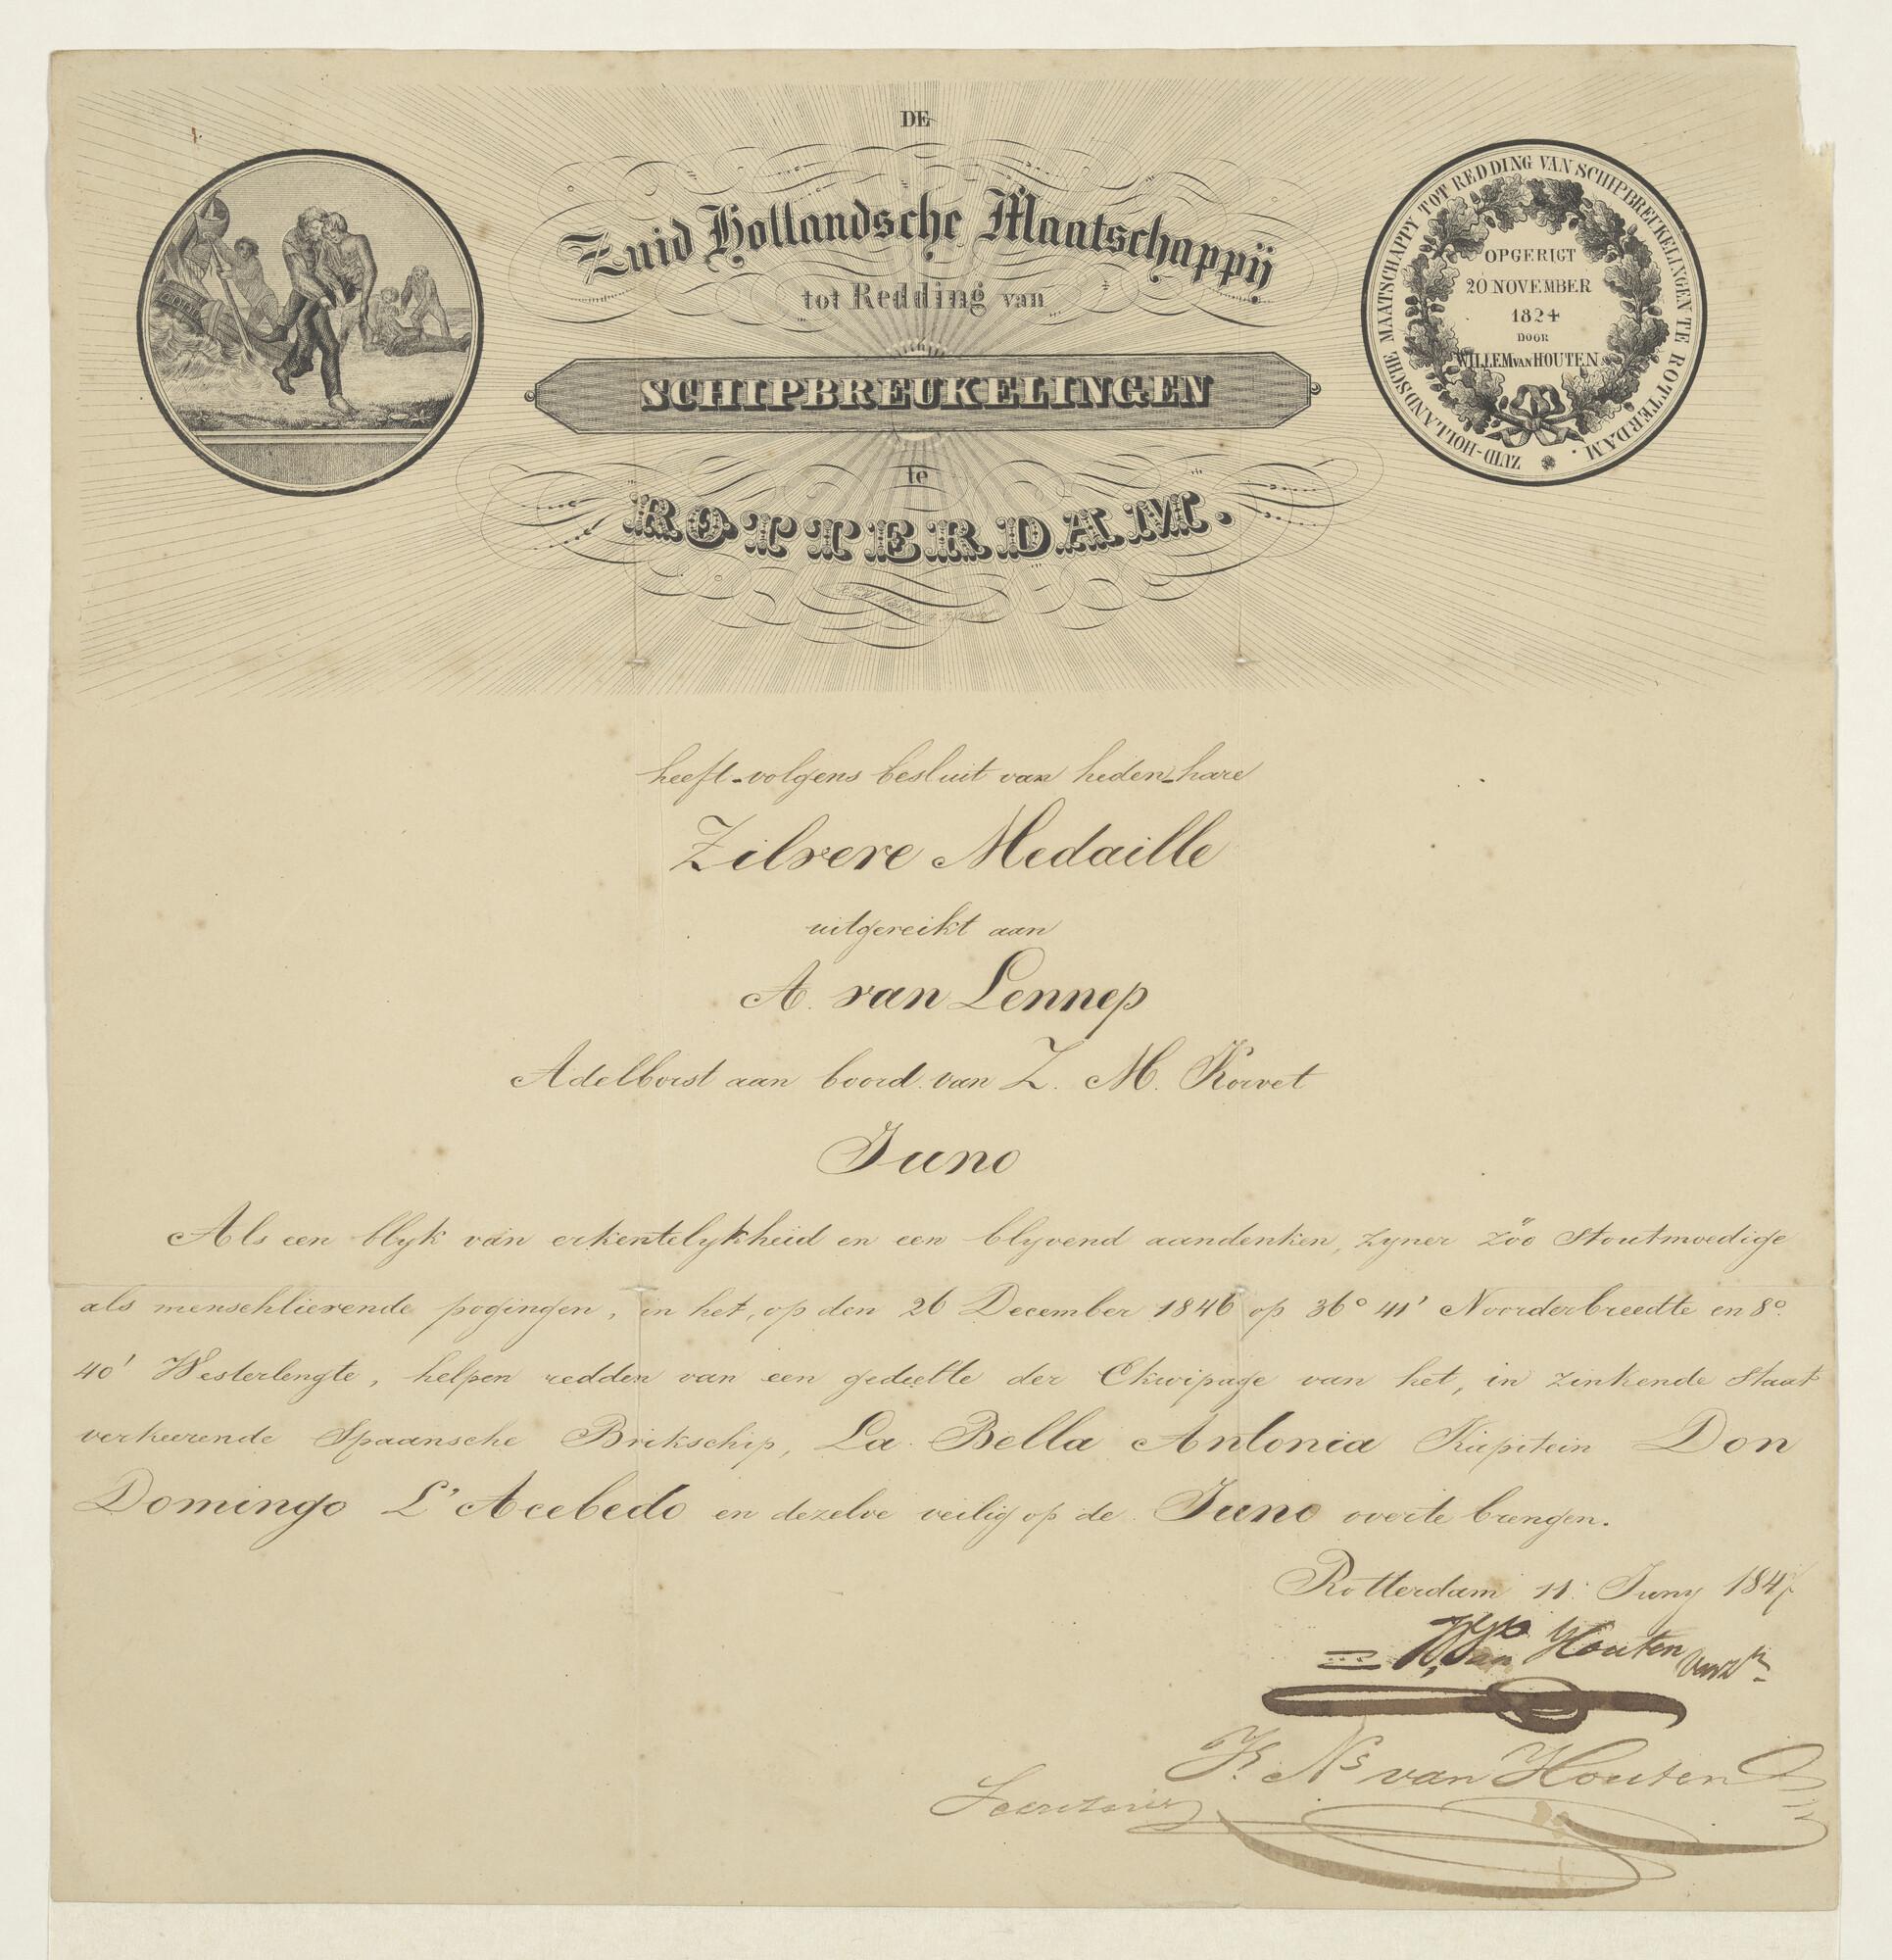 DE
Zuid Hollandsche Maatschappij
tot Redding van
SCHIPBREUKELINGEN
te
ROTTERDAM.
ZUID-HOLLANDSCHE MAATSCHAPPY TOT REDDING VAN SCHIPBREUKELINGEN TE ROTTERDAM.
OPGERIGT
20 NOVEMBER
1824
DOOR
WILLEM VAN HOUTEN
heeft volgens besluit van heden hare
Zilvere Medaille
uitgereikt aan
A. van Lennep
Adelborst aan boord van Z. M. Korvet
Juno
Als een blyk van erkentelykheid en een blyvend aandenken, zyner zöo stoutmoedige
als menschlievende pogingen, in het, op den 26 December 1846 op 36° 41' Noorderbreedte en 8°.
40' Westerlengte, helpen redden van een gedeelte der Ekwipage van het, in zinkende staat
verkeerende Spaansche Brikschip, La Bella Antonia Kapitein Don
Domingo L'Acebedo en dezelve veilig op de Juno overte brengen.
Rotterdam 11 Juny 1847
van Houten
K. Ns van Houten
Secretaris